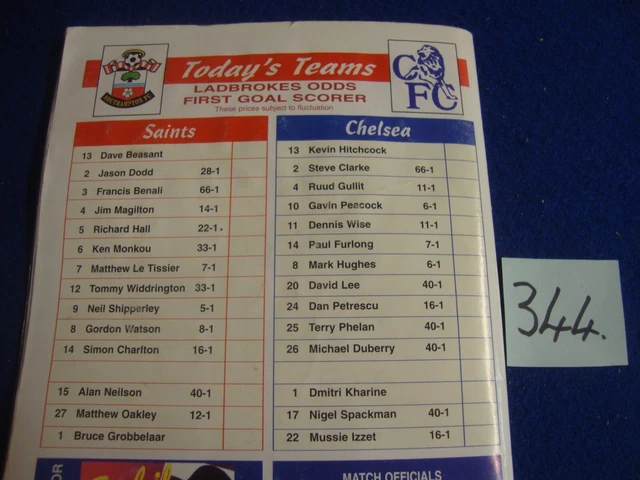 Today's Teams
LADBROKES ODDS
FIRST GOAL SCORER
These prices subject to fluctuation
SOUTHAMPTON FC
CFC
Saints
13 Dave Beasant
2 Jason Dodd 28-1
3 Francis Benali 66-1
4 Jim Magilton 14-1
5 Richard Hall 22-1
6 Ken Monkou 33-1
7 Matthew Le Tissier 7-1
12 Tommy Widdrington 33-1
9 Neil Shipperley 5-1
8 Gordon Watson 8-1
14 Simon Charlton 16-1
15 Alan Neilson 40-1
27 Matthew Oakley 12-1
1 Bruce Grobbelaar
Chelsea
13 Kevin Hitchcock
2 Steve Clarke 66-1
4 Ruud Gullit 11-1
10 Gavin Peacock 6-1
11 Dennis Wise 11-1
14 Paul Furlong 7-1
8 Mark Hughes 6-1
20 David Lee 40-1
24 Dan Petrescu 16-1
25 Terry Phelan 40-1
26 Michael Duberry 40-1
1 Dmitri Kharine
17 Nigel Spackman 40-1
22 Mussie Izzet 16-1
MATCH OFFICIALS
344.